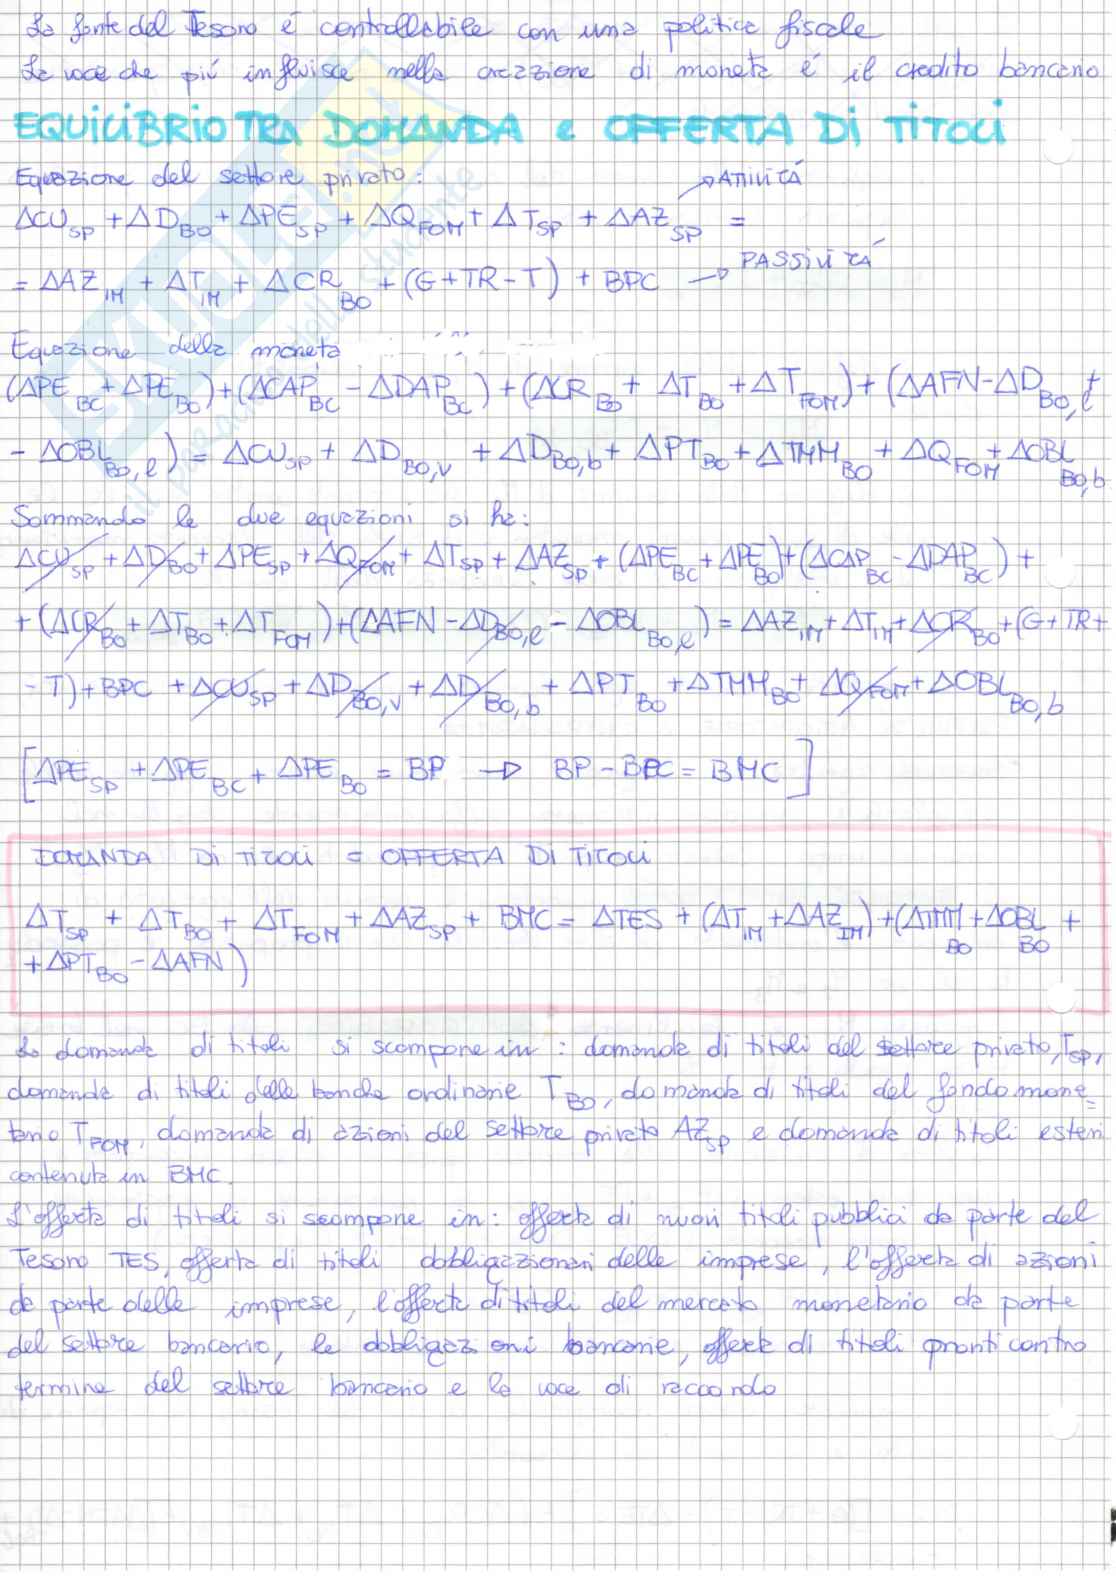 La fonte del Tesoro é controllabile con una politica fiscale
La voce che piú influisce nella creazione di moneta é il credito bancario
EQUILIBRIO TRA DOMANDA e OFFERTA DI TITOLI
Equazione del settore privato:
→ ATTIVITÁ
ΔCU_SP + ΔD_BO + ΔPE_SP + ΔQ_FOM + ΔT_SP + ΔAZ_SP =
= ΔAZ_IM + ΔT_IM + ΔCR_BO + (G+TR-T) + BPC → PASSIVITÁ
Equazione della moneta
(ΔPE_BC + ΔPE_BO) + (ΔCAP_BC - ΔDAP_BC) + (ΔCR_BO + ΔT_BO + ΔT_FOM) + (ΔAFN - ΔD_BO,l +
- ΔOBL_BO,l) = ΔCU_SP + ΔD_BO,v + ΔD_BO,b + ΔPT_BO + ΔTMM_BO + ΔQ_FOM + ΔOBL_BO,b
Sommando le due equazioni si ha:
ΔCU_SP + ΔD_BO + ΔPE_SP + ΔQ_FOM + ΔT_SP + ΔAZ_SP + (ΔPE_BC + ΔPE_BO) + (ΔCAP_BC - ΔDAP_BC) +
+ (ΔCR_BO + ΔT_BO + ΔT_FOM) + (ΔAFN - ΔD_BO,l - ΔOBL_BO,l) = ΔAZ_IM + ΔT_IM + ΔCR_BO + (G+TR+
- T) + BPC + ΔCU_SP + ΔD_BO,v + ΔD_BO,b + ΔPT_BO + ΔTMM_BO + ΔQ_FOM + ΔOBL_BO,b
[ΔPE_SP + ΔPE_BC + ΔPE_BO = BP → BP - BPC = BMC]
DOMANDA DI TITOLI = OFFERTA DI TITOLI
ΔT_SP + ΔT_BO + ΔT_FOM + ΔAZ_SP + BMC = ΔTES + (ΔT_IM + ΔAZ_IM) + (ΔTMM_BO + ΔOBL_BO +
+ ΔPT_BO - ΔAFN)
La domanda di titoli si scompone in: domanda di titoli del settore privato, T_SP,
domanda di titoli delle banche ordinarie T_BO, domanda di titoli del fondo mone=
tario T_FOM, domanda di azioni del settore privato AZ_SP e domanda di titoli esteri
contenuta in BMC.
L'offerta di titoli si scompone in: offerta di nuovi titoli pubblici da parte del
Tesoro TES, offerta di titoli obbligazionari delle imprese, l'offerta di azioni
da parte delle imprese, l'offerta di titoli del mercato monetario da parte
del settore bancario, le obbligazioni bancarie, offerta di titoli pronti contro
termine del settore bancario e la voce di raccordo